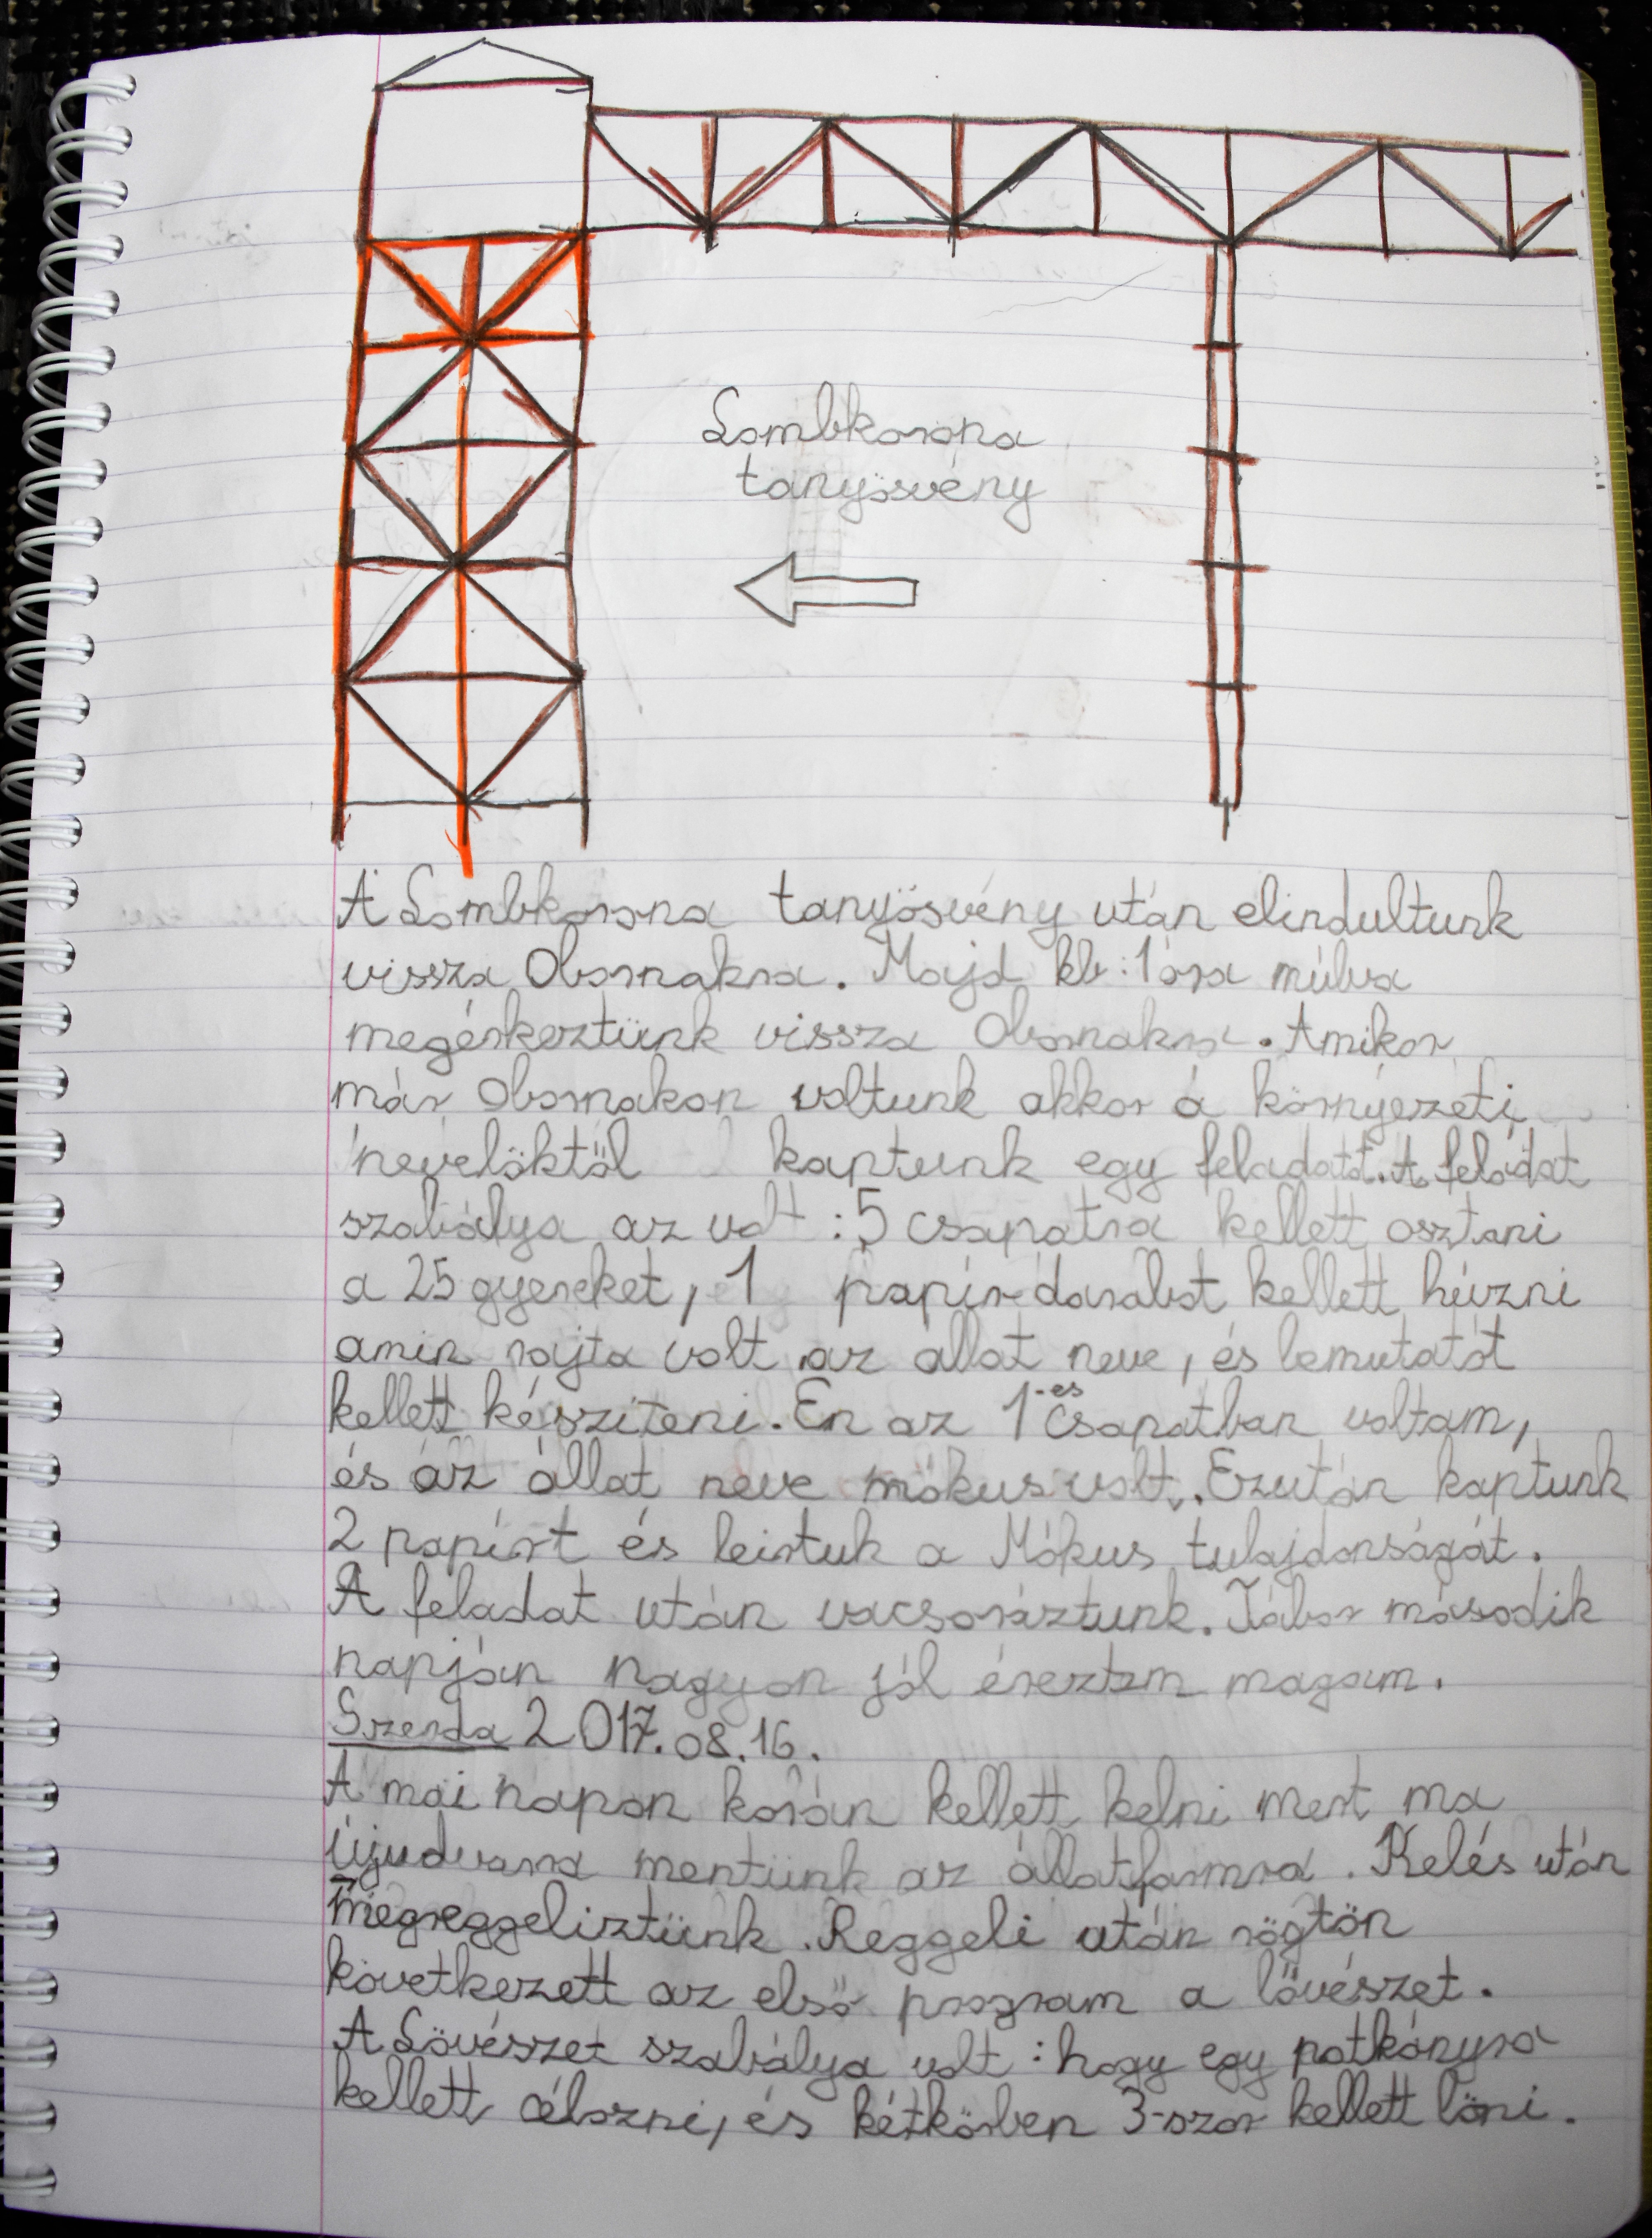 Lombkorona
tanyösvény
A Lombkorona tanyösvény után elindultunk
vissza Obornakra. Majd kb:1 óra múlva
megérkeztünk vissza Obornakra. Amikor
már Obornakon voltunk akkor a környezeti
nevelöktöl kaptunk egy feladatot. A feladat
szabálya az volt : 5 csapatra kellett osztani
a 25 gyereket, 1 papír darabot kellett húzni
amin rajta volt az állat neve, és bemutatót
kellett készíteni. Én az 1-es csapatban voltam,
és az állat neve mókus volt. Ezután kaptunk
2 papírt és leirtuk a Mókus tulajdonságát.
A feladat után vacsoráztunk. Tábor második
napján nagyon jól éreztem magam.
Szerda 2017.08.16.
A mai napon korán kellett kelni mert ma
újudvarra mentünk az állatfarmra. Kelés után
megreggeliztünk. Reggeli után rögtön
következett az első program a lövészet.
A Lövészet szabálya volt : hogy egy patkányra
kellett célozni, és kétkörben 3-szor kellett löni.